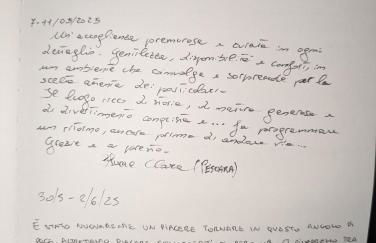 7-11/05/2025
Un'accoglienza premurosa e curata in ogni
dettaglio. Gentilezza, disponibilità e comfort, in
un ambiente che coinvolge e sorprende per la
scelta attenta dei particolari.
Se luogo ricco di storia, di natura generosa e
di divertimento conquista e... fa programmare
un ritorno, ancora prima di andare via...
Grazie e a presto.
Clara (PESCARA)
30/5 - 2/6/25
È STATO NUOVAMENTE UN PIACERE TORNARE IN QUESTO ANGOLO DI